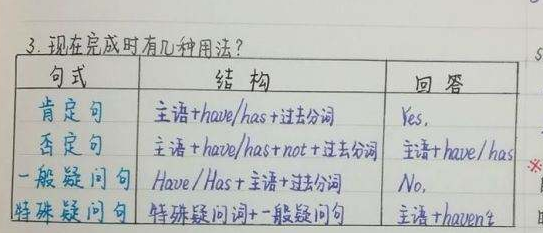 3. 现在完成时有几种用法?
句式 结构 回答
肯定句 主语+have/has+过去分词 Yes,
否定句 主语+have/has+not+过去分词 主语+have/has
一般疑问句 Have/Has+主语+过去分词 No,
特殊疑问句 特殊疑问词+一般疑问句 主语+haven't
※